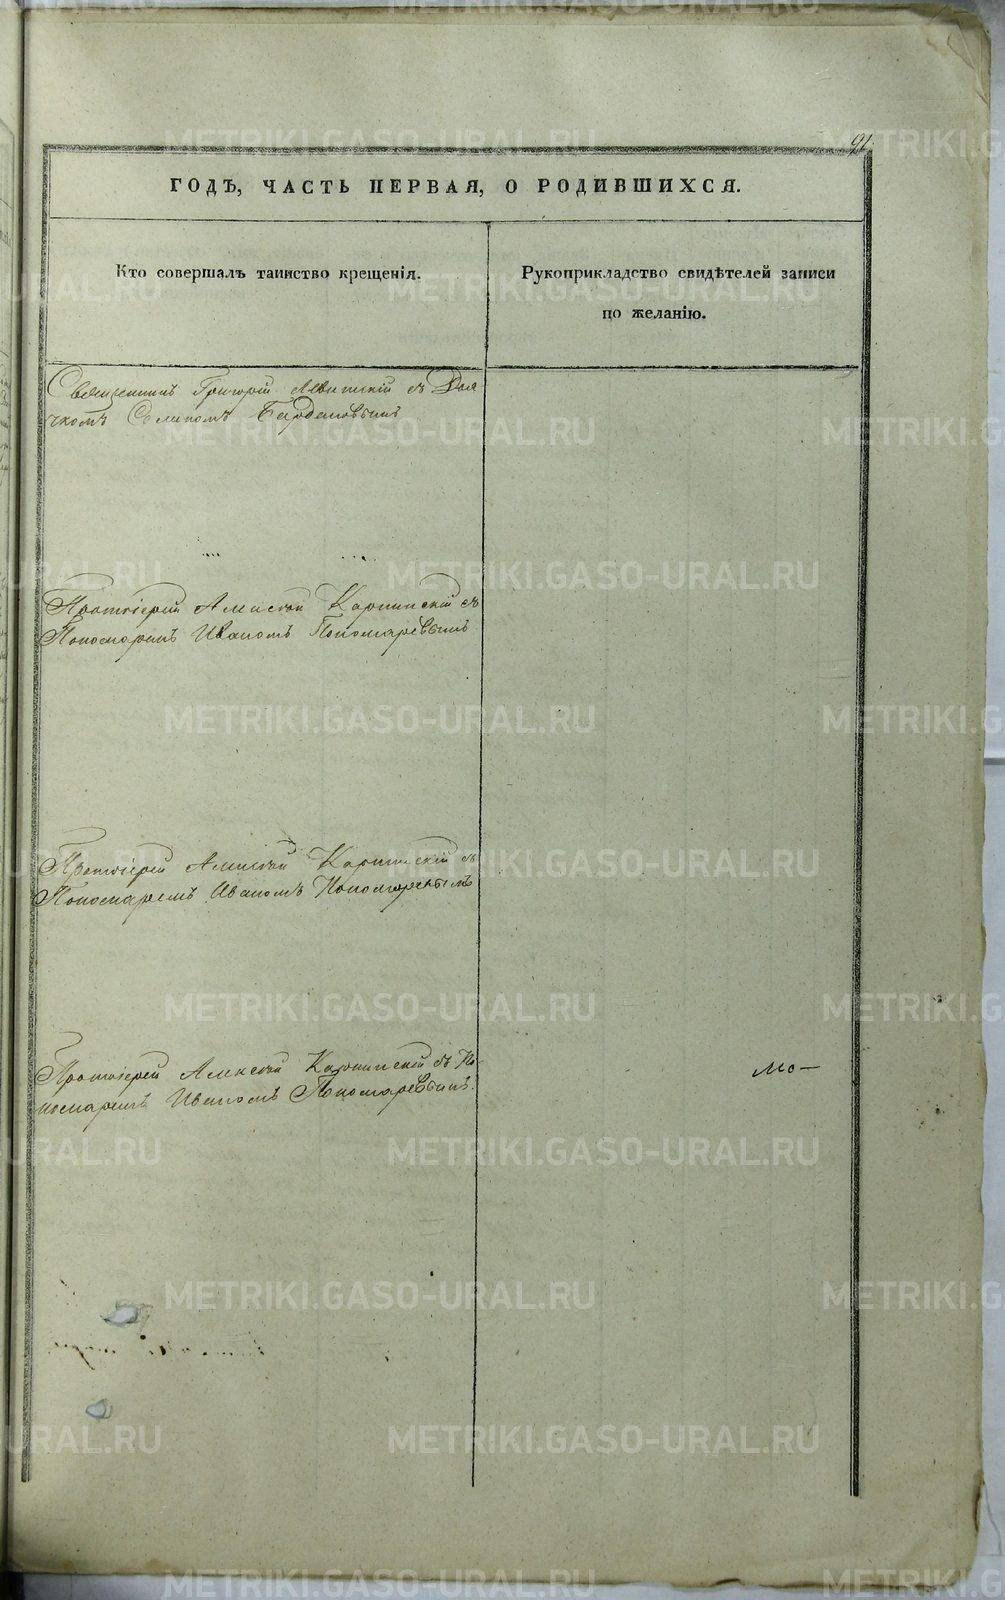 91.
ГОДЪ, ЧАСТЬ ПЕРВАЯ, О РОДИВШИХСЯ.
Кто совершалъ таинство крещенія.
Рукоприкладство свидѣтелей записи
по желанію.
Священникъ Григорій съ Дья
чкомъ
Протоіерей Алексѣй Карпинскій съ
Пономаремъ Иваномъ Пономаревымъ
Протоіерей Алексѣй Карпинскій съ
Пономаремъ Иваномъ Пономаревымъ
Протоіерей Алексѣй Карпинскій съ По
номаремъ Иваномъ Пономаревымъ.
мо—
METRIKI.GASO-URAL.RU